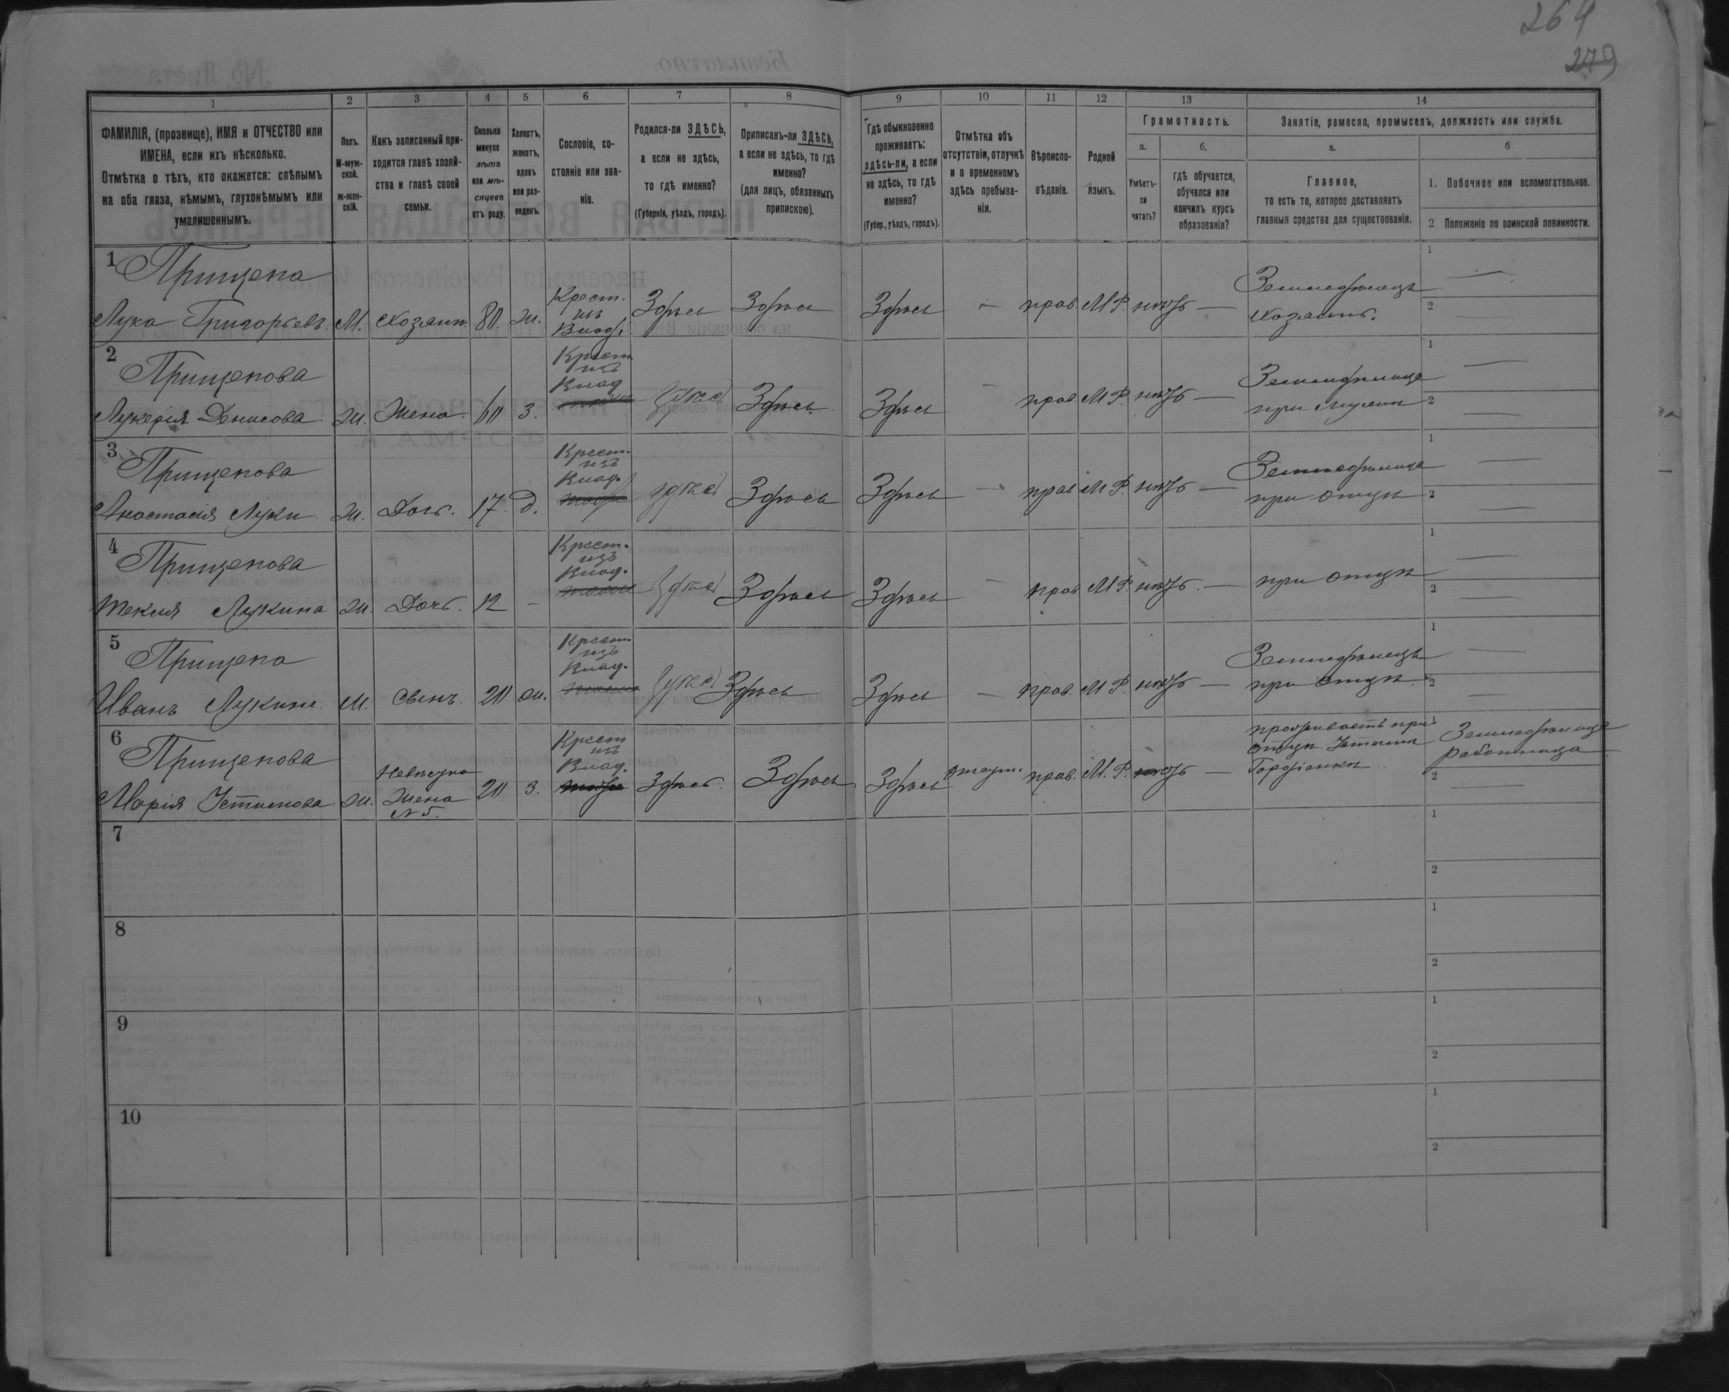 264
279
1
2
3
4
5
6
7
8
9
10
11
12
13
14
ФАМИЛІЯ, (прозвище), ИМЯ и ОТЧЕСТВО или
ИМЕНА, если ихъ нѣсколько.
Отмѣтка о тѣхъ, кто окажется: слѣпымъ
на оба глаза, нѣмымъ, глухонѣмымъ или
умалишеннымъ.
Полъ.
М-муж-
ской.
ж-жен-
скій.
Какъ записанный при-
ходится главѣ хозяй-
ства и главѣ своей
семьи.
Сколько
минуло
лѣтъ
или мѣ-
сяцевъ
отъ роду.
Холостъ,
женатъ,
вдовъ
или раз-
веденъ.
Сословіе, со-
стояніе или зва-
ніе.
Родился-ли ЗДѢСЬ,
а если не здѣсь,
то гдѣ именно?
(Губернія, уѣздъ, городъ).
Приписанъ-ли ЗДѢСЬ,
а если не здѣсь, то гдѣ
именно?
(для лицъ, обязанныхъ
припискою).
Гдѣ обыкновенно
проживаетъ:
здѣсь-ли, а если
не здѣсь, то гдѣ
именно?
(Губер., уѣздъ, городъ).
Отмѣтка объ
отсутствіи, отлучкѣ
и о временномъ
здѣсь пребыва-
ніи.
Вѣроиспо-
вѣданіе.
Родной
языкъ.
Грамотность.
а.
Умѣетъ-
ли
читать?
б.
гдѣ обучается,
обучался или
кончилъ курсъ
образованія?
Занятіе, ремесло, промыселъ, должность или служба.
а.
Главное,
то есть то, которое доставляетъ
главныя средства для существованія.
б
1. Побочное или вспомогательное.
2 Положеніе по воинской повинности.
1
Прищепа
Лука Григорьевъ М. хозяин. 80 ж. Крест. изъ Влад. Здѣсь Здѣсь Здѣсь — прав. М.Р. нѣтъ — Земледѣлецъ хозяинъ.
1
2
2
Прищепова
Лукерія Денисова ж. Жена 60 з. Крест изъ Влад Здѣсь Здѣсь Здѣсь — прав М.Р. нѣтъ — при мужѣ
1
2
3
Прищепова
Анастасія Луки ж. Доч. 17 д. Крест. изъ Влад. Здѣсь Здѣсь Здѣсь — прав М.Р. нѣтъ — при отцѣ
1
2
4
Прищепова
Лукина ж. Дочь. 12 — Крест. изъ Влад. Здѣсь Здѣсь Здѣсь — прав М.Р. нѣтъ. — при отцѣ
1
2
5
Прищепа
Иванъ Лукинъ М. сынъ. 20 ж. Крест. изъ Влад. Здѣсь Здѣсь Здѣсь — прав. М.Р. нѣтъ — Земледѣлецъ при отцѣ
1
2
6
Прищепова
Марія Устимова ж. Невѣстка Жена №5. 20 з. Крест изъ Влад. Здѣсь Здѣсь Здѣсь прав. М.Р. нѣтъ — проживаетъ при отцѣ работница
2
7
1
2
8
1
2
9
1
2
10
1
2